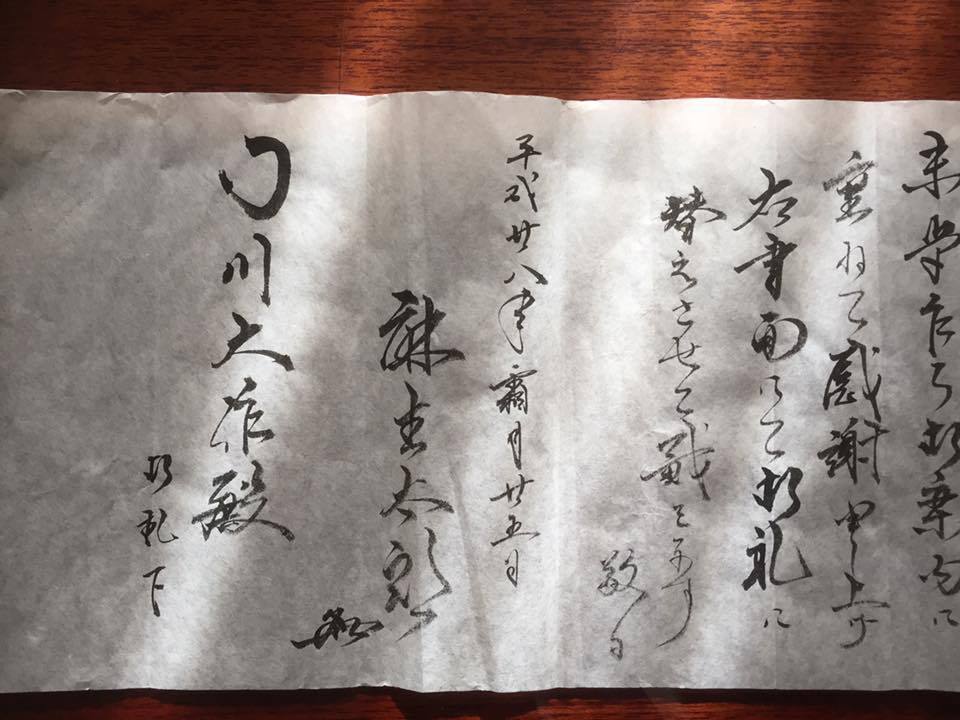 末筆乍ら御案内に
重ねて感謝申上げ
右書面にて御礼に
替えさせて戴きます
敬白
平成廿八年霜月廿五日
太郎
川大作殿
御机下